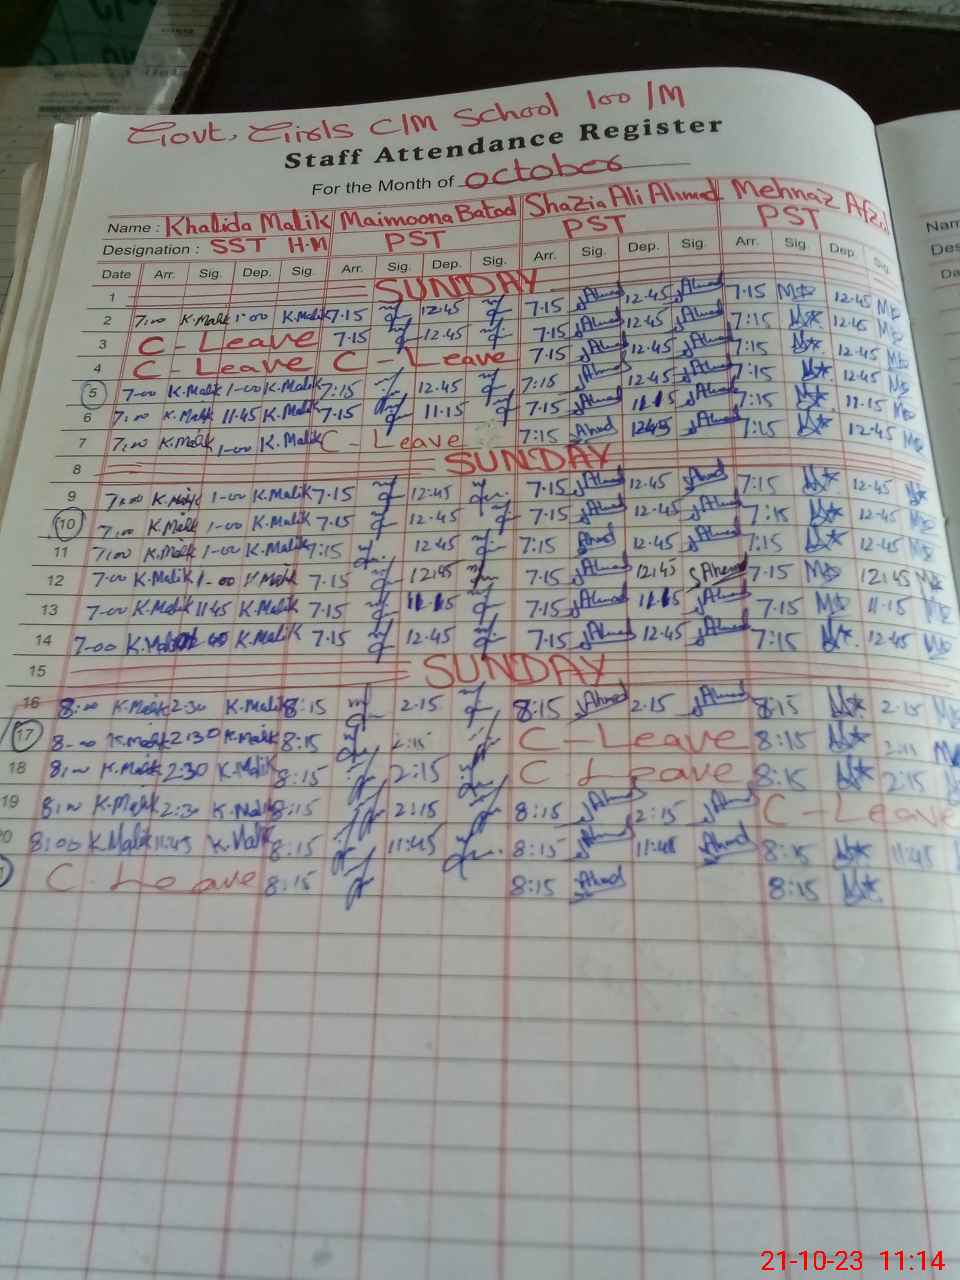 Govt, Girls C/M School 100/M
Staff Attendance Register
For the Month of October
Name : Khalida Malik Maimoona Batool Shazia Ali Ahmad Mehnaz Afzal
Designation : SST H.M PST PST PST
Date Arr. Sig. Dep. Sig. Arr. Sig. Dep. Sig. Arr. Sig. Dep. Sig. Arr. Sig. Dep. Sig.
1 SUNDAY
2 7:00 K.Malik 1-00 K.Malik 7.15 12.45 7.15 Ahmad 12.45 Ahmad 7.15 12.45
3 C - Leave 7.15 12.45 7.15 Ahmad 12.45 Ahmad 7:15 12.45
4 C - Leave C - Leave 7.15 Ahmad 12.45 Ahmad 7:15 12.45
5 7-00 K.Malik 1-00 K.Malik 7:15 12.45 7:15 Ahmad 12.45 Ahmad 7:15 12.45
6 7:00 K.Malik 11.45 K.Malik 7.15 11.15 7.15 Ahmad 11.15 Ahmad 7:15 11.15
7 7:00 K.Malik 1-00 K.Malik C - Leave 7:15 Ahmad 12.45 Ahmad 7:15 12.45
8 SUNDAY
9 7:00 K.Malik 1-00 K.Malik 7.15 12:45 7.15 Ahmad 12.45 Ahmad 7:15 12.45
10 7:00 K.Malik 1-00 K.Malik 7.15 12.45 7.15 Ahmad 12.45 Ahmad 7:15 12.45
11 7:00 K.Malik 1-00 K.Malik 7:15 12.45 7:15 Ahmad 12.45 Ahmad 7:15 12.45
12 7-00 K.Malik 1-00 K.Malik 7.15 12.45 7.15 Ahmad 12.45 Ahmad 7.15 12.45
13 7-00 K.Malik 11.45 K.Malik 7.15 11.15 7.15 Ahmad 11.15 Ahmad 7.15 11.15
14 7-00 K.Malik K.Malik 7.15 12.45 7.15 Ahmad 12.45 Ahmad 7:15 12.45
15 SUNDAY
16 8:00 K.Malik 2.30 K.Malik 8:15 2.15 8:15 Ahmad 2.15 Ahmad 8:15 2.15
17 8-00 K.Malik 2:30 K.Malik 8:15 2:15 C - Leave 8:15 2:15
18 8:00 K.Malik 2:30 K.Malik 8:15 2:15 C. Leave 8:15 2:15
19 8:00 K.Malik 2:30 K.Malik 8:15 2:15 8:15 Ahmad 2:15 Ahmad C - Leave
20 8:00 K.Malik 11:45 K.Malik 8:15 11:45 8:15 Ahmad 11:45 Ahmad 8:15 11:45
C. Leave 8:15 8:15 Ahmad 8:15
21-10-23 11:14